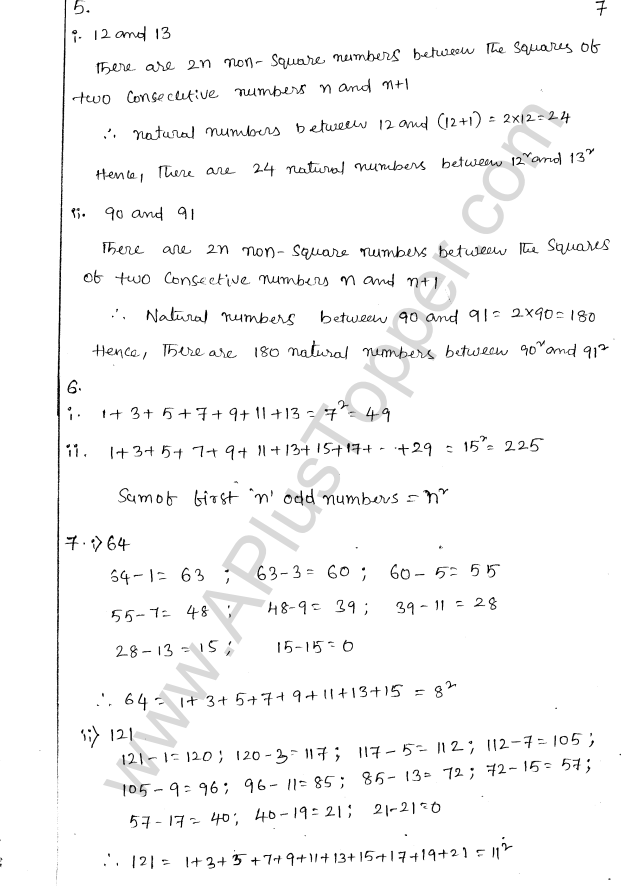 5.
7
i. 12 and 13
There are 2n non-square numbers between the squares of
two consecutive numbers n and n+1
∴ natural numbers between 12 and (12+1) = 2×12=24
Hence, There are 24 natural numbers between 12² and 13²
ii. 90 and 91
There are 2n non-square numbers between the squares
of two Consective numbers n and n+1
∴ Natural numbers between 90 and 91= 2×90=180
Hence, There are 180 natural numbers between 90² and 91²
6.
i. 1+3+5+7+9+11+13=7²=49
ii. 1+3+5+7+9+11+13+15+17+--+29 = 15²=225
Sum of first 'n' odd numbers = n²
7.i) 64
64-1= 63 ; 63-3= 60 ; 60-5= 55
55-7= 48 ; 48-9= 39 ; 39-11 = 28
28-13=15 ; 15-15=0
∴ 64= 1+3+5+7+9+11+13+15 = 8²
ii) 121
121-1=120 ; 120-3=117 ; 117-5= 112 ; 112-7=105 ;
105-9= 96 ; 96-11=85 ; 85-13= 72 ; 72-15=57 ;
57-17= 40 ; 40-19=21 ; 21-21=0
∴ 121 = 1+3+5+7+9+11+13+15+17+19+21=11²
www.APlusTopper.com